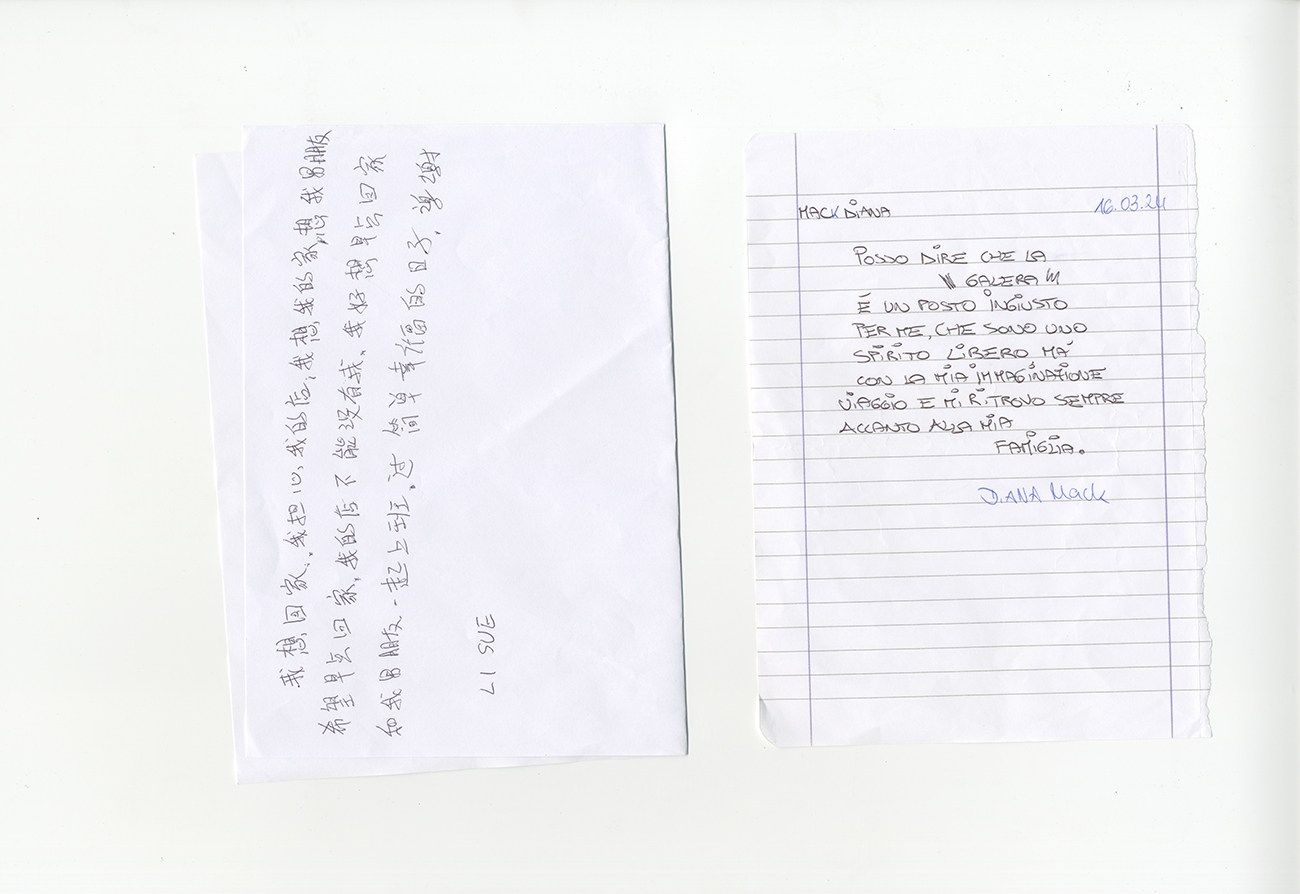 我想回家、我担心,我的店,我想,我的家,想我男朋友
希望早点回家,我的店不能没有我,我好想早点回家
和我男朋友一起上班,过简单幸福的日子,谢谢
LI SUE
MACK DIANA 16.03.24
POSSO DIRE CHE LA
"GALERA"
É UN POSTO INGIUSTO
PER ME, CHE SONO UNO
SPIRITO LIBERO MÁ
CON LA MIA IMMAGINAZIONE
VIAGGIO E MI RITROVO SEMPRE
ACCANTO ALLA MIA
FAMIGLIA.
DIANA Mack